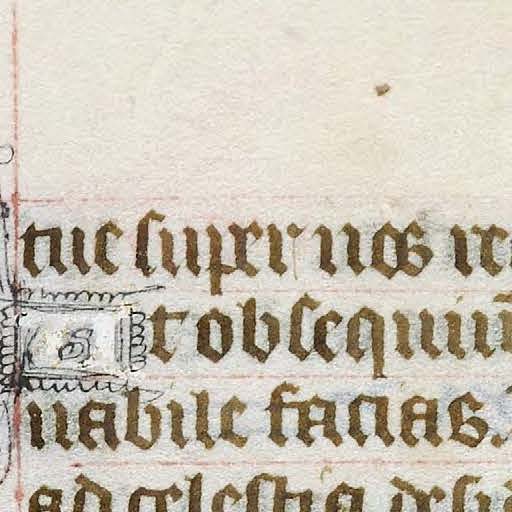 tue super nos
t obsequiu
nabile facias.
ad celestia